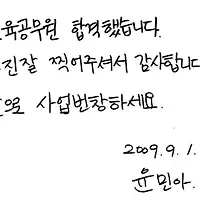 육공무원 합격했습니다.
진잘 찍어주셔서 감사합니다
사업번창하세요.
2009.9.1.
윤민아.